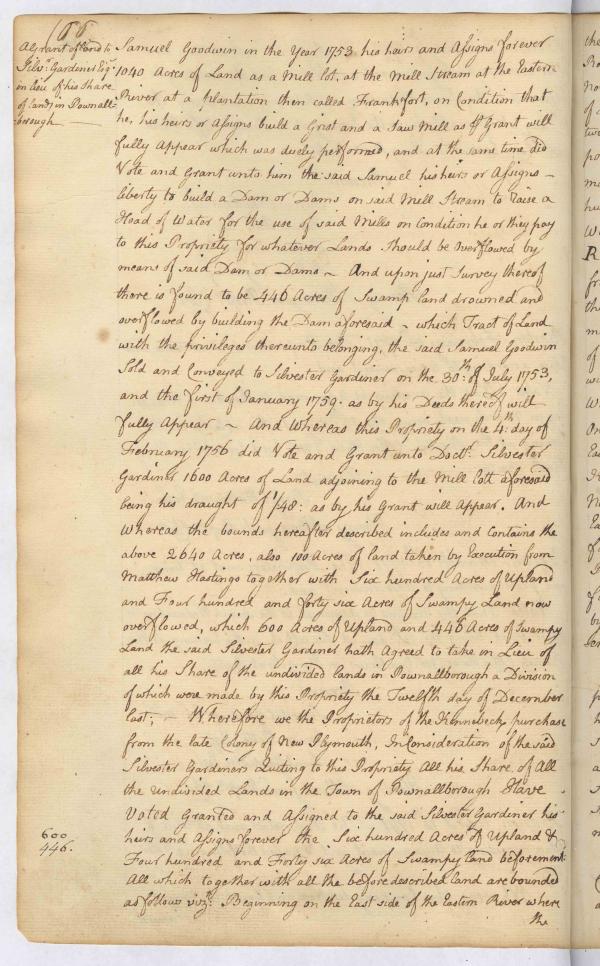 166
A Grant of Land to
Silvr. Gardiner Esqr.
in lieu of his Share
of lands in Pownall-
borough
Samuel Goodwin in the Year 1753 his heirs and Assigns forever
1040 Acres of Land as a Mill lot, at the Mill Stream at the Eastern
River at a plantation then called Frankfort, on Condition that
he, his heirs or Assigns build a Grist and a Saw Mill as pr Grant will
fully Appear which was duely performed, and at the same time did
Vote and Grant unto him the said Samuel his heirs or Assigns -
liberty to build a Dam or Dams on said Mill Stream to raise a
Head of Water for the use of said Mills on Condition he or they pay
to this Propriety for whatever Lands should be overflowed by
means of said Dam or Dams ~ And upon just Survey thereof
there is found to be 446 Acres of Swamp land drowned and
overflowed by building the Dam aforesaid ~ which Tract of Land
with the privileges thereunto belonging, the said Samuel Goodwin
Sold and Conveyed to Silvester Gardiner on the 30th: of July 1753,
and the first of January 1759. as by his Deeds thereof will
fully Appear ~ And Whereas this Propriety on the 4th: day of
February 1756 did Vote and Grant unto Doctr. Silvester
Gardiner 1600 Acres of Land adjoining to the Mill Lott aforesaid
being his draught of 1/48: as by his Grant will Appear. And
Whereas the bounds hereafter described includes and Contains the
above 2640 Acres, also 100 Acres of land taken by Execution from
Matthew Hastings together with Six hundred Acres of Upland
and Four hundred and forty six Acres of Swampy Land now
overflowed, which 600 Acres of Upland and 446 Acres of Swampy
Land the said Silvester Gardiner hath Agreed to take in Lieu of
all his Share of the undivided lands in Pownallborough a Division
of which were made by this Propriety the Twelfth day of December
last; ~ Wherefore we the Proprietors of the Kennebeck purchase
from the late Colony of New Plymouth, In Consideration of the said
Silvester Gardiners Quiting to this Propriety All his Share of All
the undivided Lands in the Town of Pownallborough Have
Voted Granted and Assigned to the said Silvester Gardiner his
heirs and Assigns forever the Six hundred Acres of Upland &
600
446.
Four hundred and Forty six Acres of Swampy land beforement:
All which together with all the before described land are bounded
as follows vizt: Beginning on the East side of the Eastern River where
the